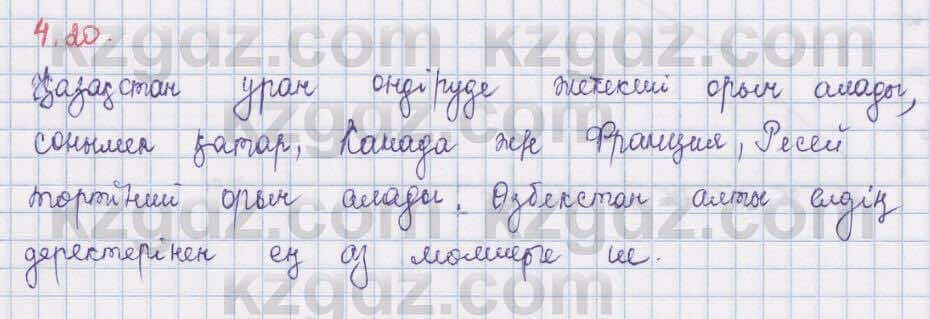 4.20.
Қазақстан уран өндіруде жетекші орын алады,
сонымен қатар, Канада және Франция, Ресей
төртінші орын алады. Өзбекстан алты елдің
деректерінен ең аз мөлшерге ие.
kzgdz.com kzgdz.com
kzgdz.com kzgdz.com
kzgdz.com kzgdz.com
kzgdz.com kzgdz.com